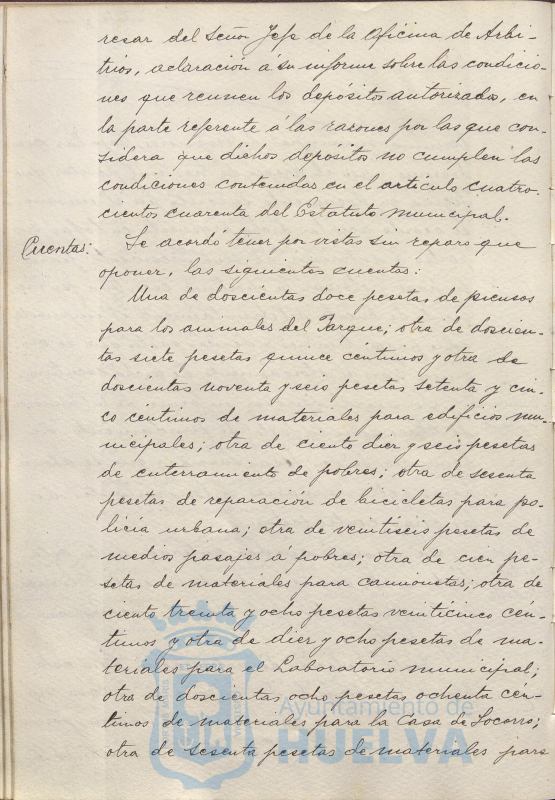 resar del Señor Jefe de la Oficina de Arbi-
trios, aclaración á su informe sobre las condicio-
nes que reunen los depósitos autorizados, en
la parte referente á las razones por las que con-
sidera que dichos depósitos no cumplen las
condiciones contenidas en el artículo cuatro-
cientos cuarenta del Estatuto municipal.
Cuentas: Se acordó tener por vistas sin reparo que
oponer, las siguientes cuentas:
Una de doscientas doce pesetas de piensos
para los animales del Parque; otra de doscien-
tas siete pesetas quince céntimos y otra de
doscientas noventa y seis pesetas setenta y cin-
co céntimos de materiales para edificios mu-
nicipales; otra de ciento diez y seis pesetas
de enterramiento de pobres; otra de sesenta
pesetas de reparación de bicicletas para po-
licia urbana; otra de veintiseis pesetas de
medios pasajes á pobres; otra de cien pe-
setas de materiales para camionetas; otra de
ciento treinta y ocho pesetas veinticinco cén-
timos y otra de diez y ocho pesetas de ma-
teriales para el Laboratorio municipal;
otra de doscientas ocho pesetas ochenta cén-
timos de materiales para la Casa de Socorro;
otra de sesenta pesetas de materiales para
Ayuntamiento de
HUELVA